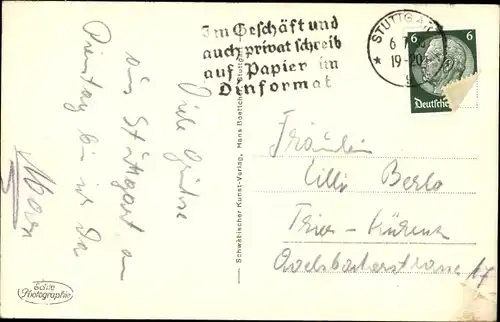 Im Geschäft und
auch privat schreib
auf Papier im
Dinformat
STUTTGART
6
19-20
6 6
Deutsche
Viele Grüsse
aus Stuttgart, am
Dienstag bin ich da
Schwäbischer Kunst-Verlag, Hans Boettcher, Stuttgart
Fräulein
Cilli Berlo
Trier-Kürenz
Avelsbacherstrasse 17
Echte
Photographie